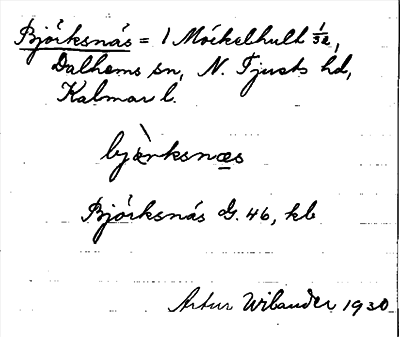 Björksnäs = 1 Möckelhult 1/32,
Dalhems sn, N. Tjusts hd,
Kalmar l.
bjœ̀rksnæs
Björksnäs G. 46, kb
Artur Wilander 1930